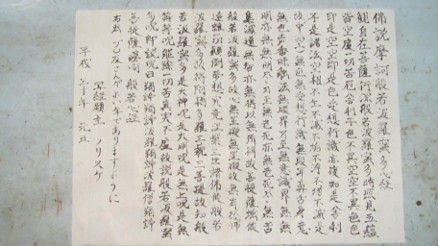 佛説摩訶般若波羅蜜多心経
観自在菩薩行深般若波羅蜜多時照見五蘊
皆空度一切苦厄舎利子色不異空空不異色色
即是空空即是色受想行識亦復如是舎利
子是諸法空相不生不滅不垢不浄不増不減是
故空中無色無受想行識無眼耳鼻舌身意
無色声香味触法無眼界乃至無意識界無無
明亦無無明尽乃至無老死亦無老死尽無苦
集滅道無智亦無得以無所得故菩提薩埵依
般若波羅蜜多故心無罣礙無罣礙故無有恐怖
遠離一切顛倒夢想究竟涅槃三世諸佛依般若
波羅蜜多故得阿耨多羅三藐三菩提故知般
若波羅蜜多是大神呪是大明呪是無上呪是無
等等呪能除一切苦真実不虚故説般若波羅蜜
多呪即説呪曰羯諦羯諦波羅羯諦波羅僧羯諦
菩提薩婆訶 般若心経
右為 がよい年でありますように
写経願主 ノリスケ
平成三十年 元旦